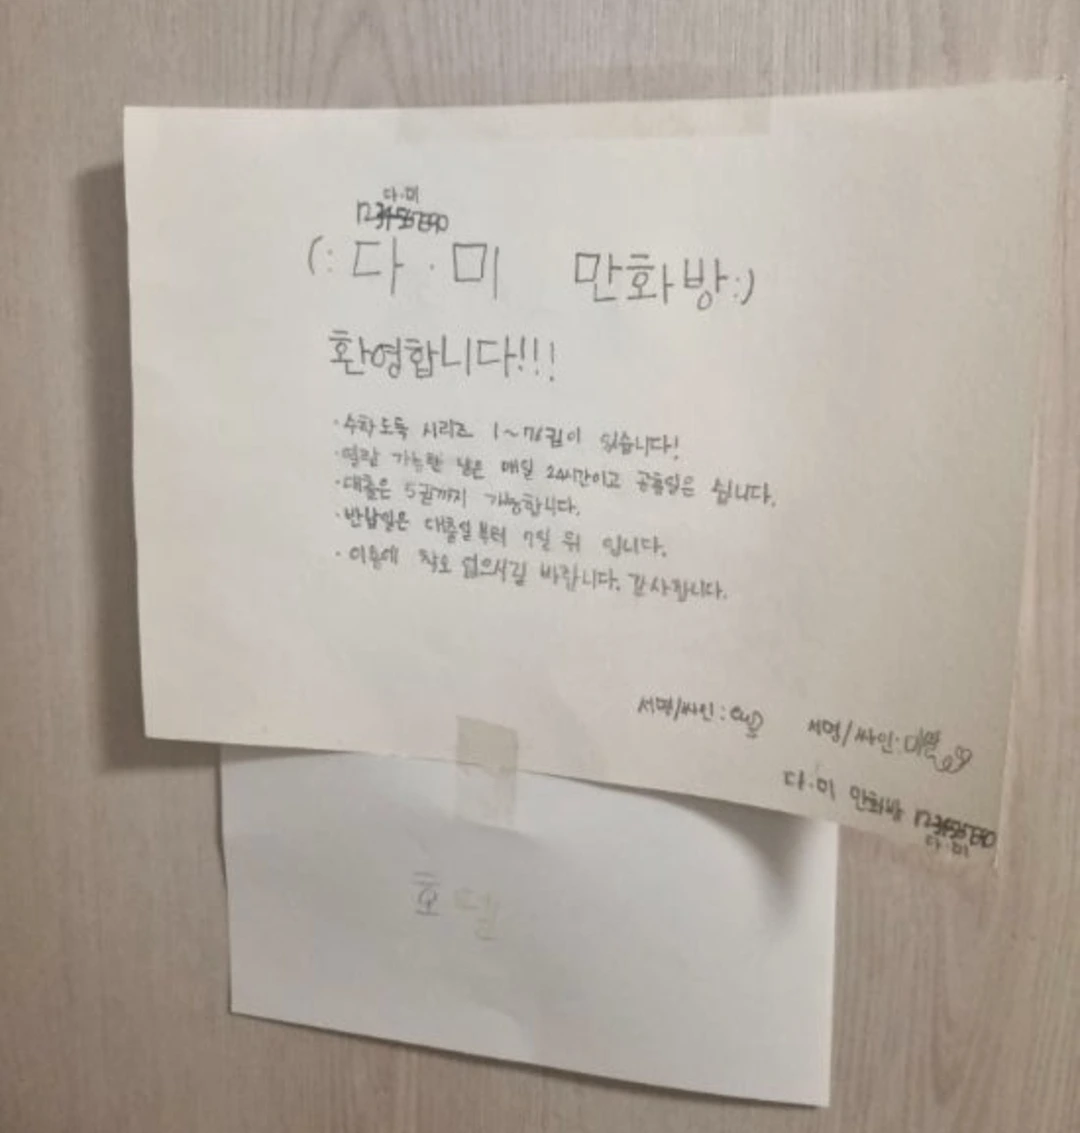 다·미
1234567890
(: 다·미 만화방:)
환영합니다!!!
·수학도둑 시리즈 1~76권이 있습니다!
·열람 가능한 날은 매일 24시간이고 공휴일은 쉽니다.
·대출은 5권까지 가능합니다.
·반납일은 대출일부터 7일 뒤 입니다.
·이용에 착오 없으시길 바랍니다. 감사합니다.
서명/싸인: 서명/싸인:
다·미 만화방 1234567890
다·미
호텔